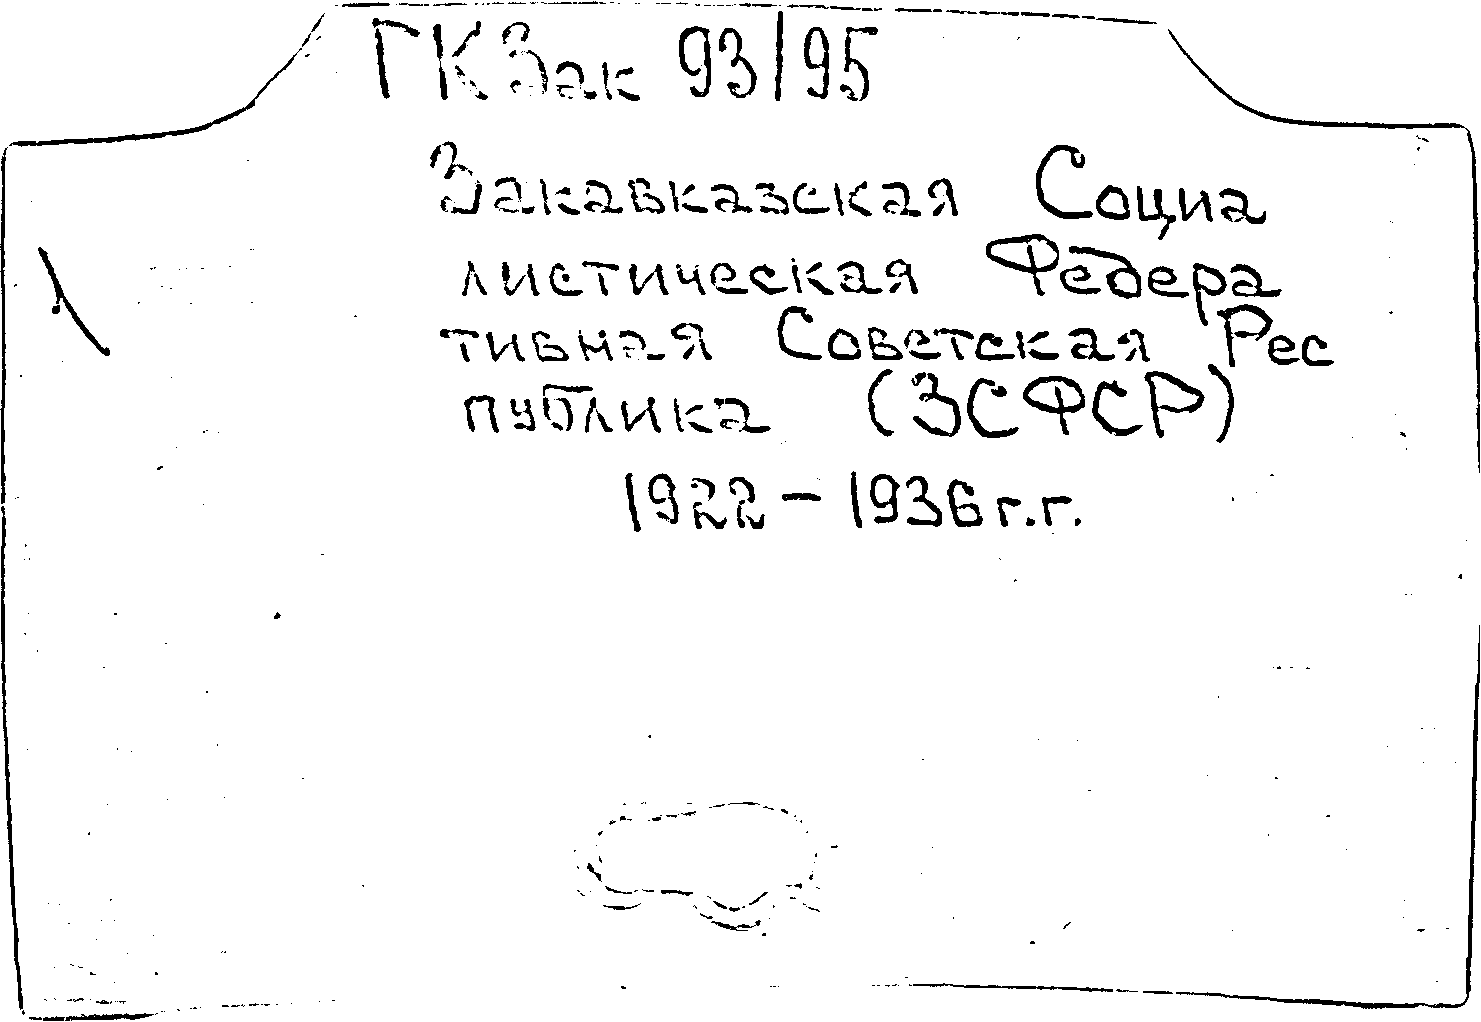 ГКЗак 93/95
Закавказская Социа
листическая Федера
тивная Советская Рес
публика (ЗСФСР)
1922 – 1936 г.г.